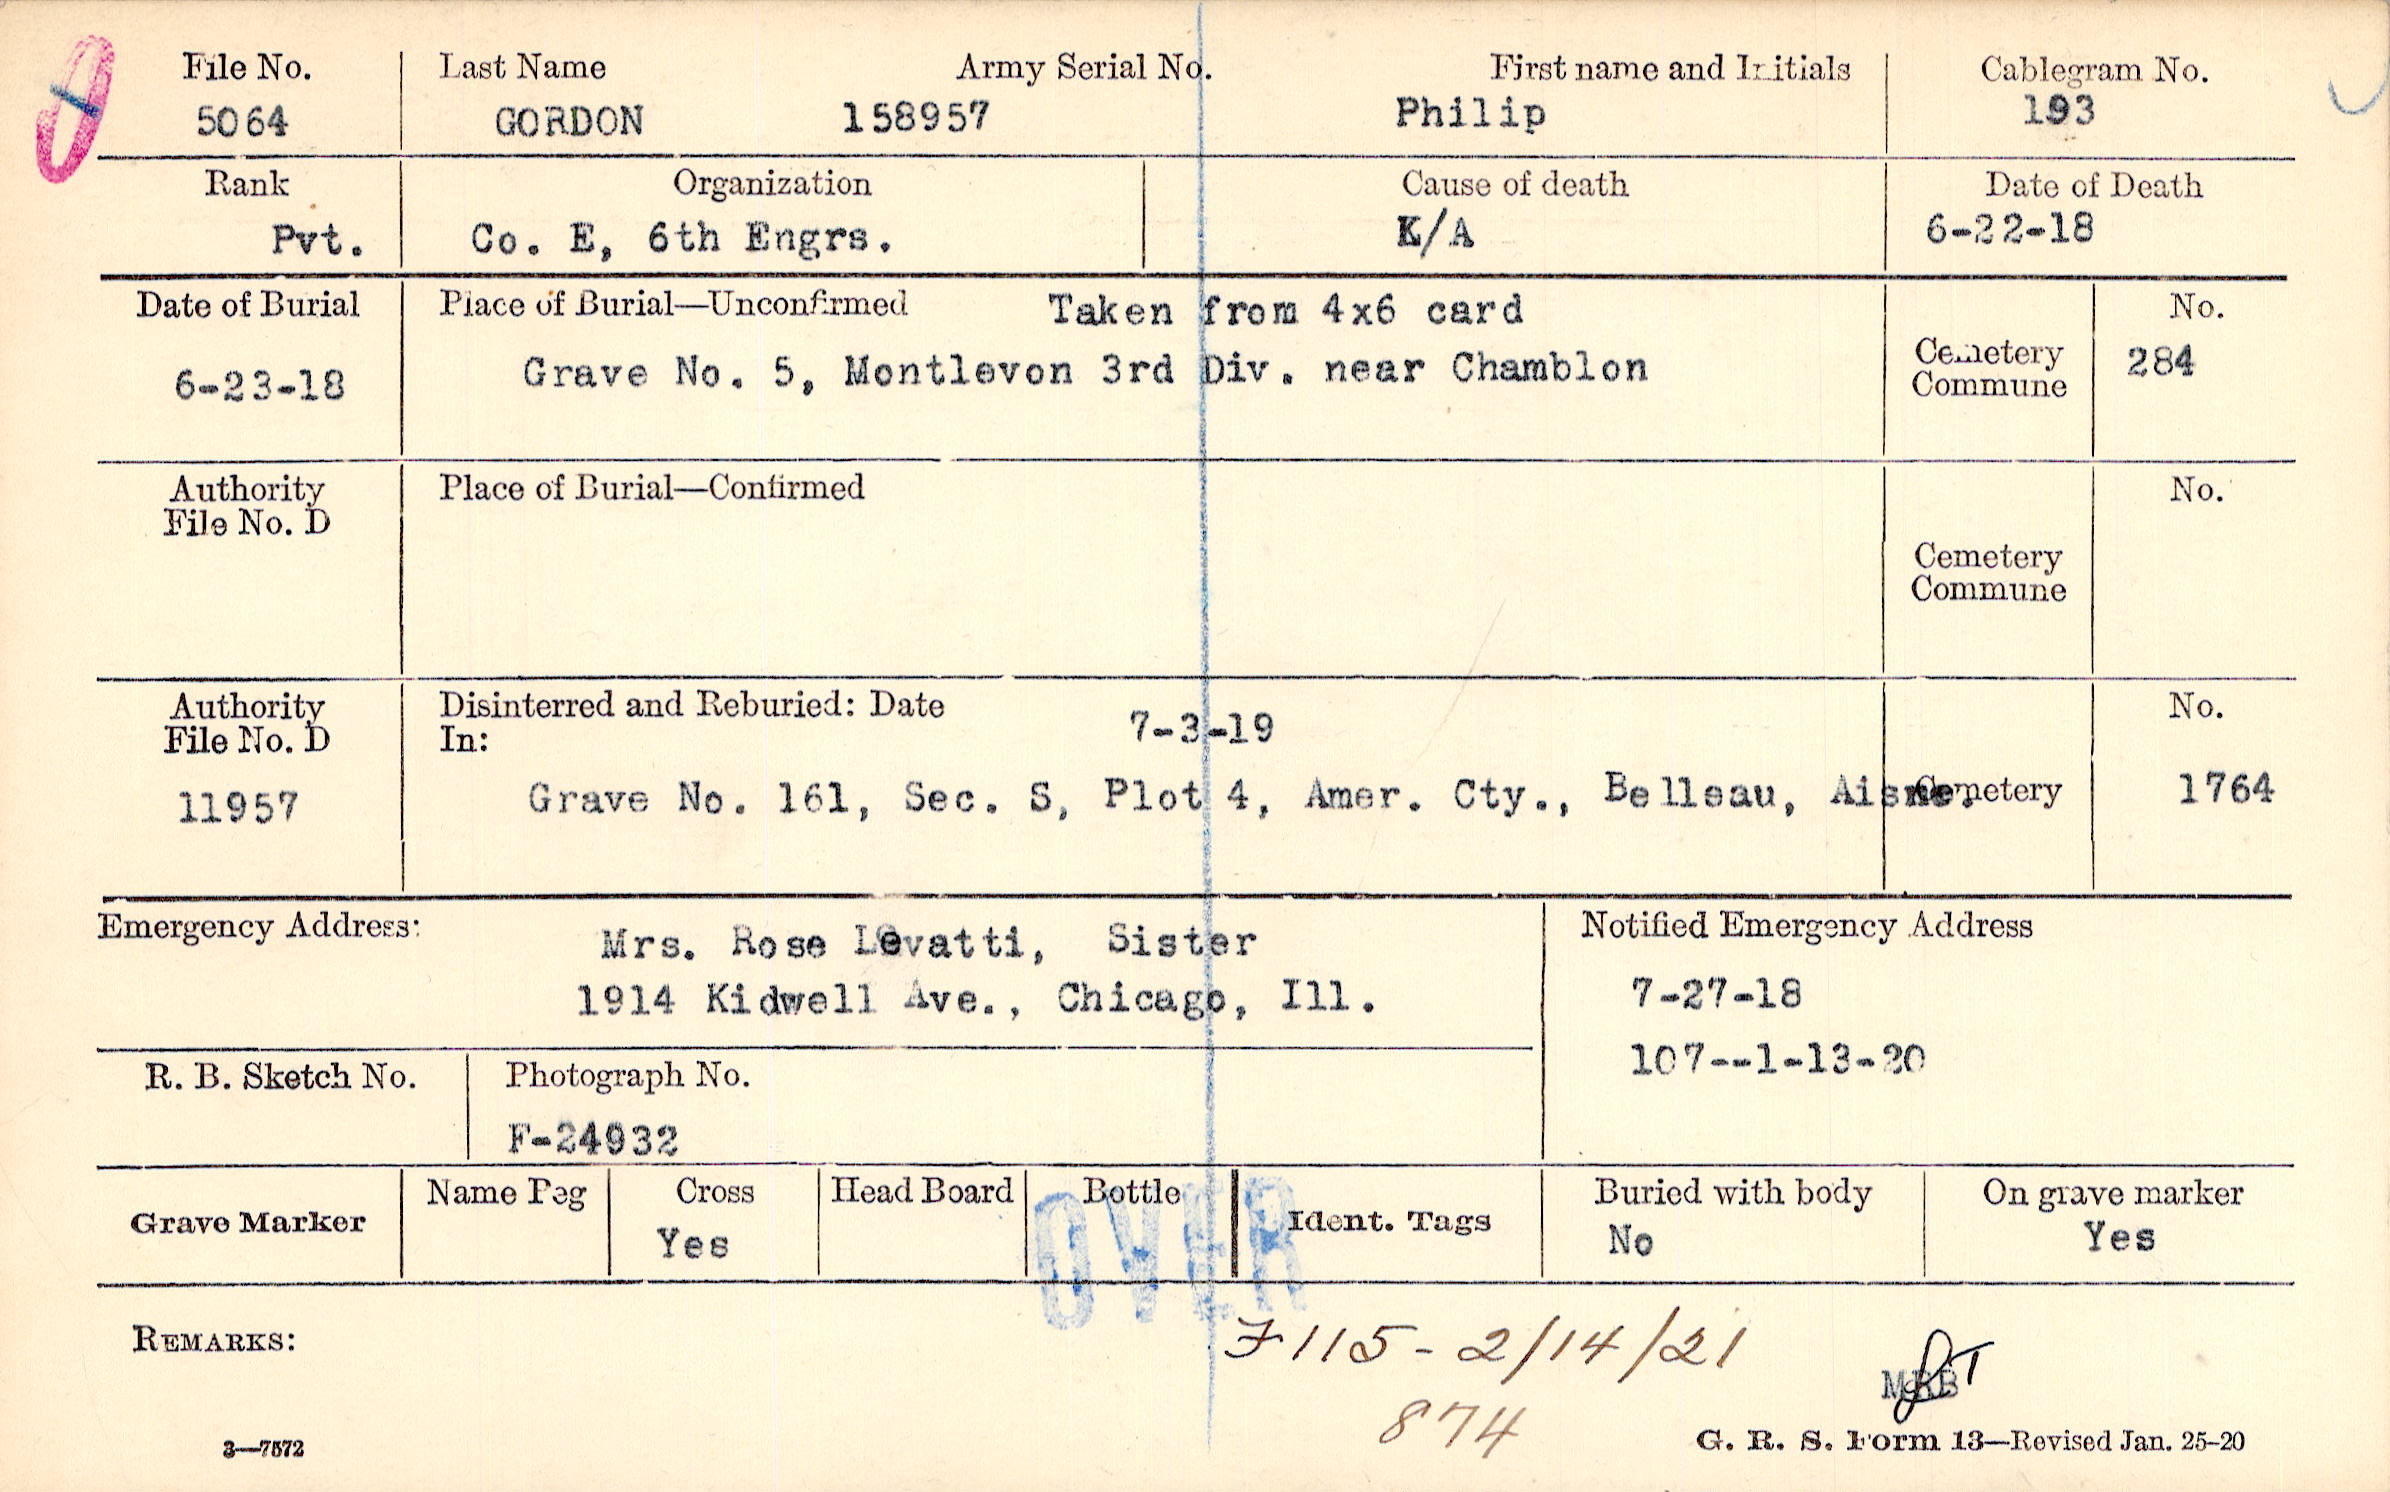 File No. Last Name Army Serial No. First name and Initials Cablegram No.
5064 GORDON 158957 Philip 193
Rank Organization Cause of death Date of Death
Pvt. Co. E, 6th Engrs. K/A 6-22-18
Date of Burial Place of Burial—Unconfirmed Taken from 4x6 card No.
6-23-18 Grave No. 5, Montlevon 3rd Div. near Chamblon Cemetery 284
Commune
Authority Place of Burial—Confirmed No.
File No. D
Cemetery
Commune
Authority Disinterred and Reburied: Date 7-3-19 No.
File No. D In:
11957 Grave No. 161, Sec. S, Plot 4, Amer. Cty., Belleau, Aisne. Cemetery 1764
Emergency Address: Notified Emergency Address
Mrs. Rose Levatti, Sister
1914 Kidwell Ave., Chicago, Ill. 7-27-18
107--1-13-20
R. B. Sketch No. Photograph No.
F-24932
Name Peg Cross Head Board Bottle Buried with body On grave marker
Grave Marker Yes Ident. Tags No Yes
OVER
REMARKS: F115 - 2/14/21
MRB
874
3—7572 G. R. S. Form 13—Revised Jan. 25-20